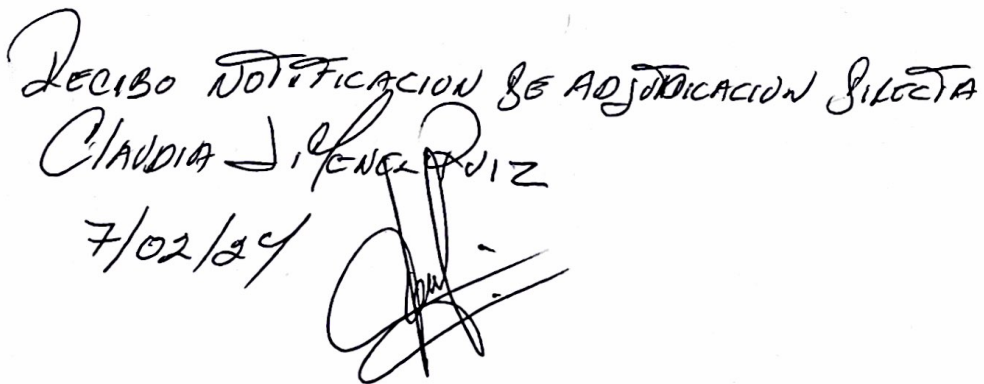 RECIBO NOTIFICACION DE ADJUDICACION DIRECTA
CLAUDIA JIMENEZ RUIZ
7/02/24